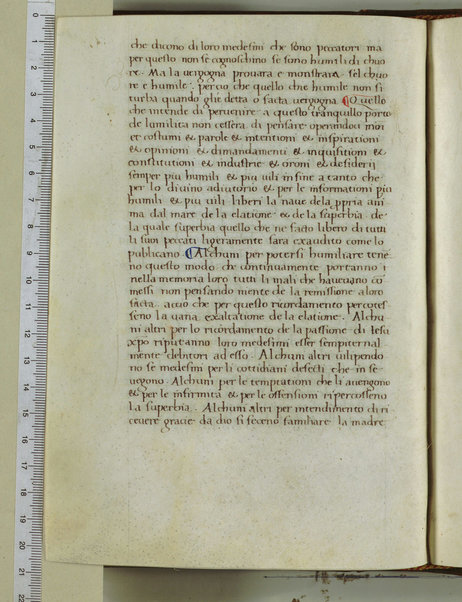 che dicono di loro medesimi che sono peccatori ma
per questo non se cognoschino se sono humili di chuo
re. Ma la uergogna prouara e monstrara sel chuo
re e humile. percio che quello che humile non si
turba quando gliè detta o facta uergogna ¶Quello
che intende di peruenire a questo tranquillo porto
de lumilita non cessera di pensare operando i modi
et costumi & parole & intentioni & inspirationi
& opinioni & dimandamenti & inquisitioni &
constitutioni & industrie & oroni & desiderij
semper piu humili & piu uili in fine a tanto che
per lo diuino adiutorio & per le informationi piu
humili & piu uili liberi la naue dela ppria ani
ma dal mare de la elatione & de la superbia de
la quale superbia quello che ne facto libero di tutti
li suoi peccati ligeramente sara exaudito come lo
publicano. ¶Alchuni per potersi humiliare tene
no questo modo che continuamente portanno i
nella memoria loro tutti li mali che haueuano co
messi non pensando mente de la remissione a loro
facta. accio che per questo ricordamento percotes
seno la uana exaltatione de la elatione. Alchu
ni altri per lo ricordamento de la passione di Iesu
xpo riputanno loro medesimi esser sempiternal
mente debitori ad esso. Alchuni altri uilipendo
no se medesimi per li cottidiani defecti che in se
uegono. Alchuni per le temptationi che li auengono
& per le infirmita & per le offensioni ripercosseno
la superbia. Alchuni altri per intendimento di ri
ceuere gracie da dio si feceno familiare la madre